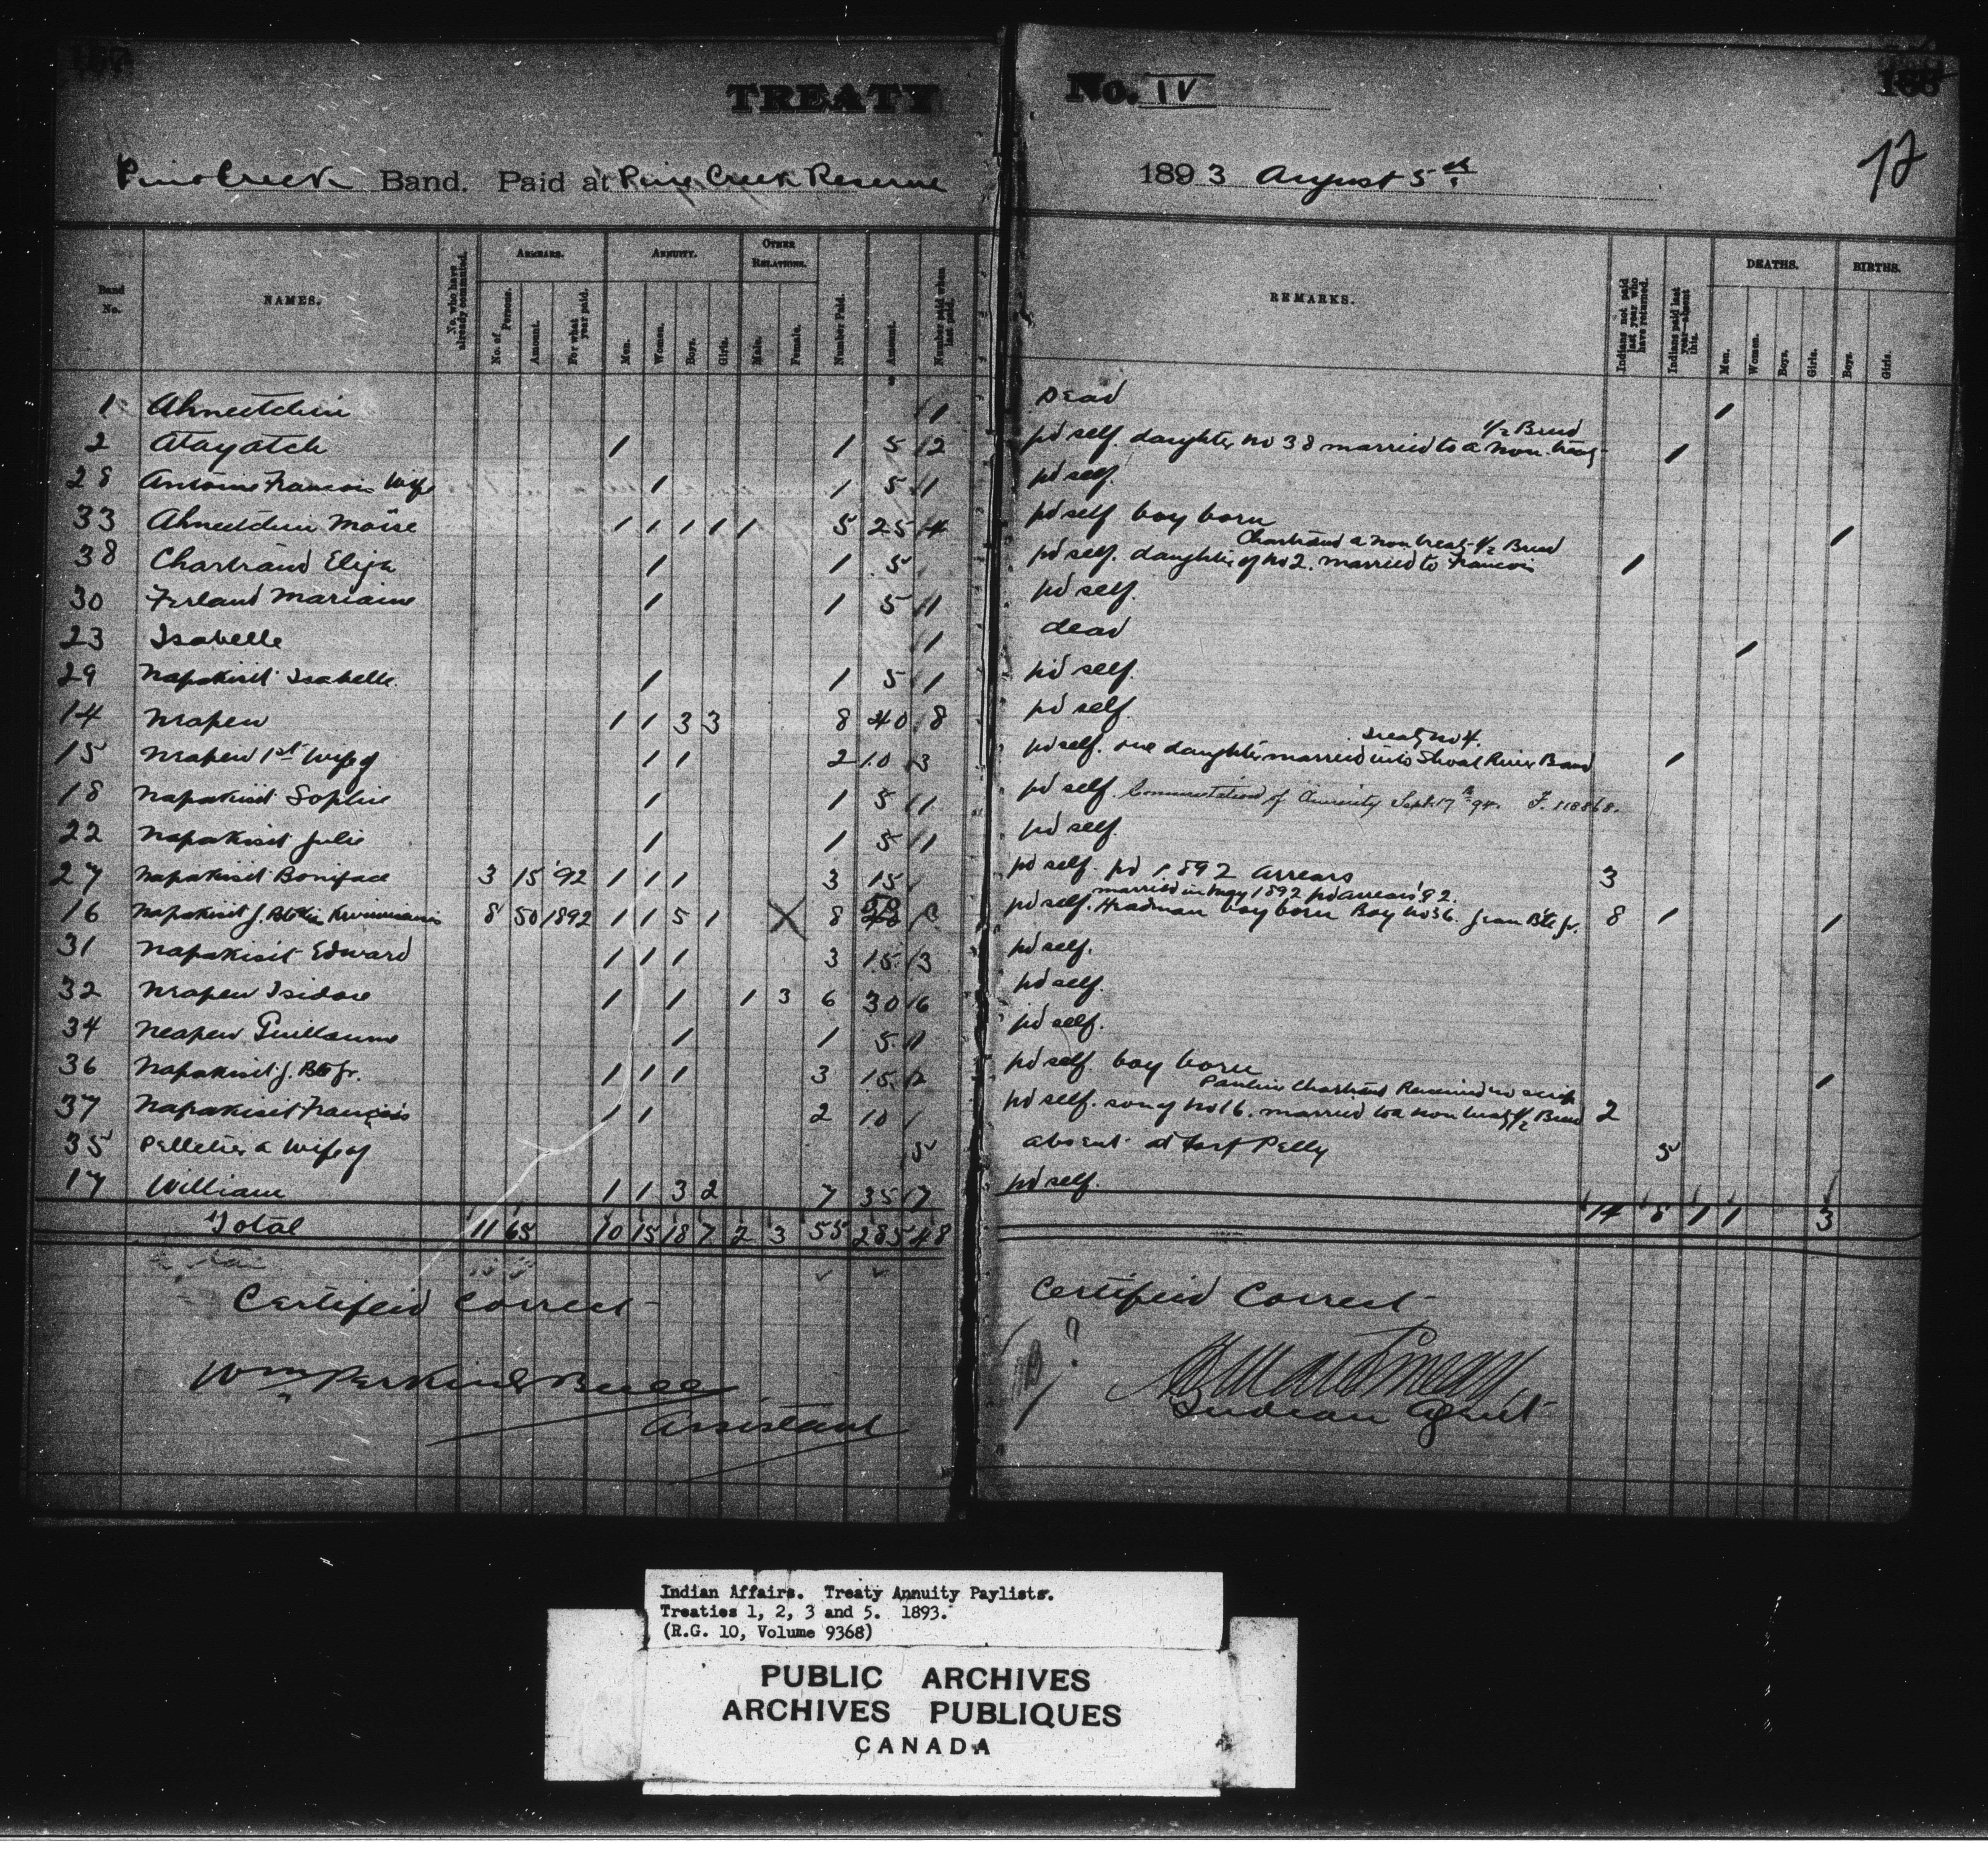 167
TREATY No. IV
168
Pine Creek Band. Paid at Pine Creek Reserve 1893 August 5th
12
Band No.
NAMES.
No. who have already commuted.
ARREARS.
No. of Persons.
Amount.
For what year paid.
ANNUITY.
Men.
Women.
Boys.
Girls.
OTHER RELATIONS.
Male.
Female.
Number Paid.
Amount.
Number paid when last paid.
REMARKS.
Indians not paid last year who have returned.
Indians paid last year—absent this.
DEATHS.
Men.
Women.
Boys.
Girls.
BIRTHS.
Boys.
Girls.
1 Ahneetchin 1 Dead 1
2 Atayatch 1 1 5 2 pd self. daughter no 38 married to a non treaty 1/2 Breed 1
28 Antoine Francois Wife 1 1 5 1 pd self.
33 Ahneetchin Moïse 1 1 1 1 1 5 25 4 pd self boy born 1
38 Chartrand Eliza 1 1 5 pd self. daughter of no 2. married to Francois Chartrand a non treaty 1/2 Breed 1
30 Ferland Mariaine 1 1 5 1 pd self.
23 Isabelle 1 dead 1
29 Napakisit Isabelle 1 1 5 1 pd self.
14 Nrapew 1 1 3 3 8 40 8 pd self.
15 Nrapew 1st Wife of 1 1 2 10 3 pd self. one daughter married into Shoal River Band Treaty no 4. 1
18 Napakisit Sophie 1 1 5 1 pd self. Commutation of Annuity Sept. 17th 94. F. 118868.
22 Napakisit Julie 1 1 5 1 pd self.
27 Napakisit Boniface 3 15 '92 1 1 1 3 15 pd self. pd 1892 arrears 3
married in May 1892 pd arrears '92.
16 Napakisit J. Bte 8 50 1892 1 1 5 1 8 pd self. Headman boy born Boy no 36. Jean Bte Jr. 8 1 1
31 Napakisit Edward 1 1 1 3 15 3 pd self.
32 Nrapew Isidore 1 1 1 3 6 30 6 pd self.
34 Neapew Guillaume 1 1 5 1 pd self.
36 Napakisit J. Bte Jr. 1 1 1 3 15 2 pd self. boy born 1
37 Napakisit François 1 1 2 10 pd self. son of no 16. married to a non treaty 1/2 Breed Pauline Chartrand Received no scrip 2
35 Pelletier a Wife of 5 absent at Fort Pelly 5
17 William 1 1 3 2 7 35 7 pd self.
Total 11 65 10 15 18 7 2 3 55 285 48 14 8 1 1 3
Certified Correct
Wm Perkins Bull
Assistant
Certified Correct
Indian Agent
Indian Affairs. Treaty Annuity Paylists.
Treaties 1, 2, 3 and 5. 1893.
(R.G. 10, Volume 9368)
PUBLIC ARCHIVES
ARCHIVES PUBLIQUES
CANADA